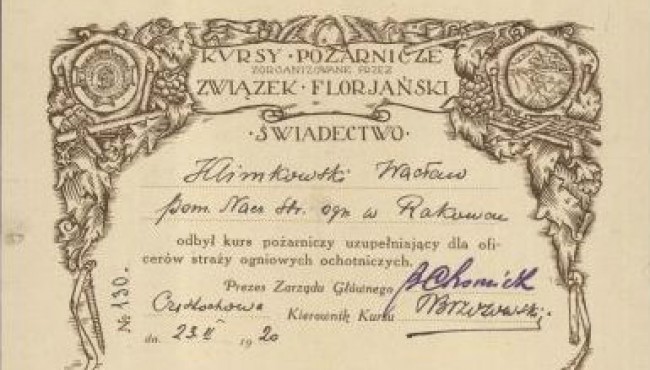 KURSY · POŻARNICZE
ZORGANIZOWANE PRZEZ
ZWIĄZEK · FLORJAŃSKI
· ŚWIADECTWO ·
Klimkowski Wacław
pom. Nacz. Str. ogn w Rakowau
odbył kurs pożarniczy uzupełniający dla ofi-
cerów straży ogniowych ochotniczych.
Prezes Zarządu Głównego BChomicz
Częstochowa Kierownik Kursu TBrzozowski.
dn. 23 II 1920
№ 130.